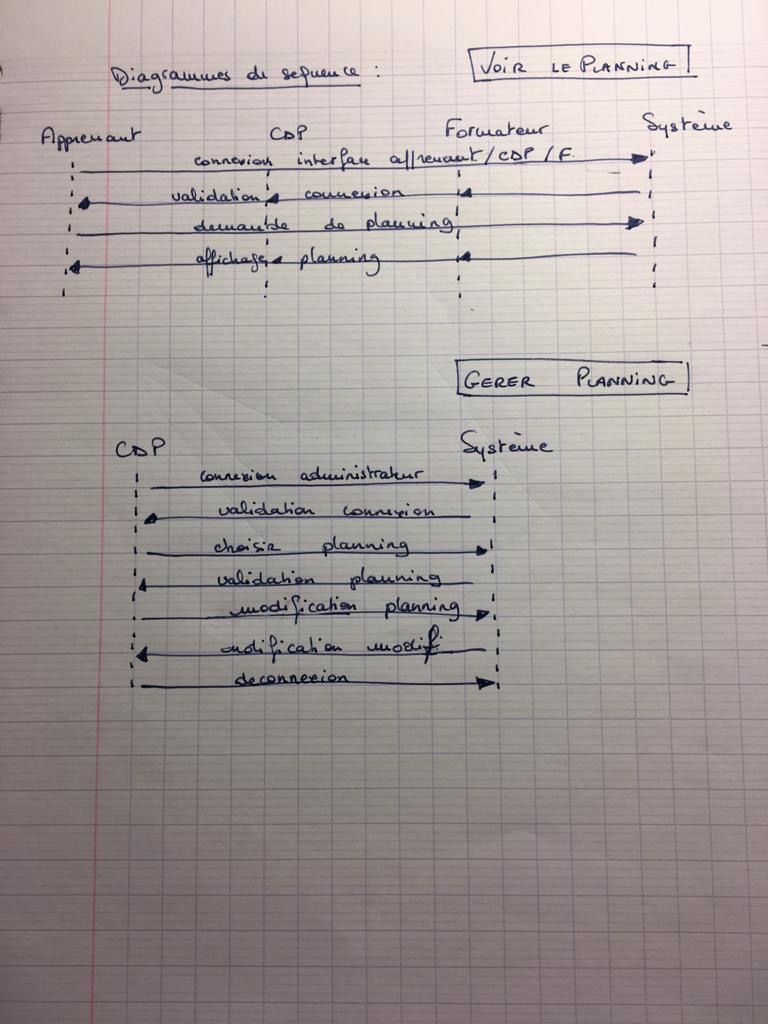 Diagrammes de sequence :
VOIR LE PLANNING
Apprenant CDP Formateur Système
connexion interface apprenant/CDP/F.
validation connexion
demande de planning
affichage planning
GERER PLANNING
CDP Système
connexion administrateur
validation connexion
choisir planning
validation planning
modification planning
notification modif
deconnexion